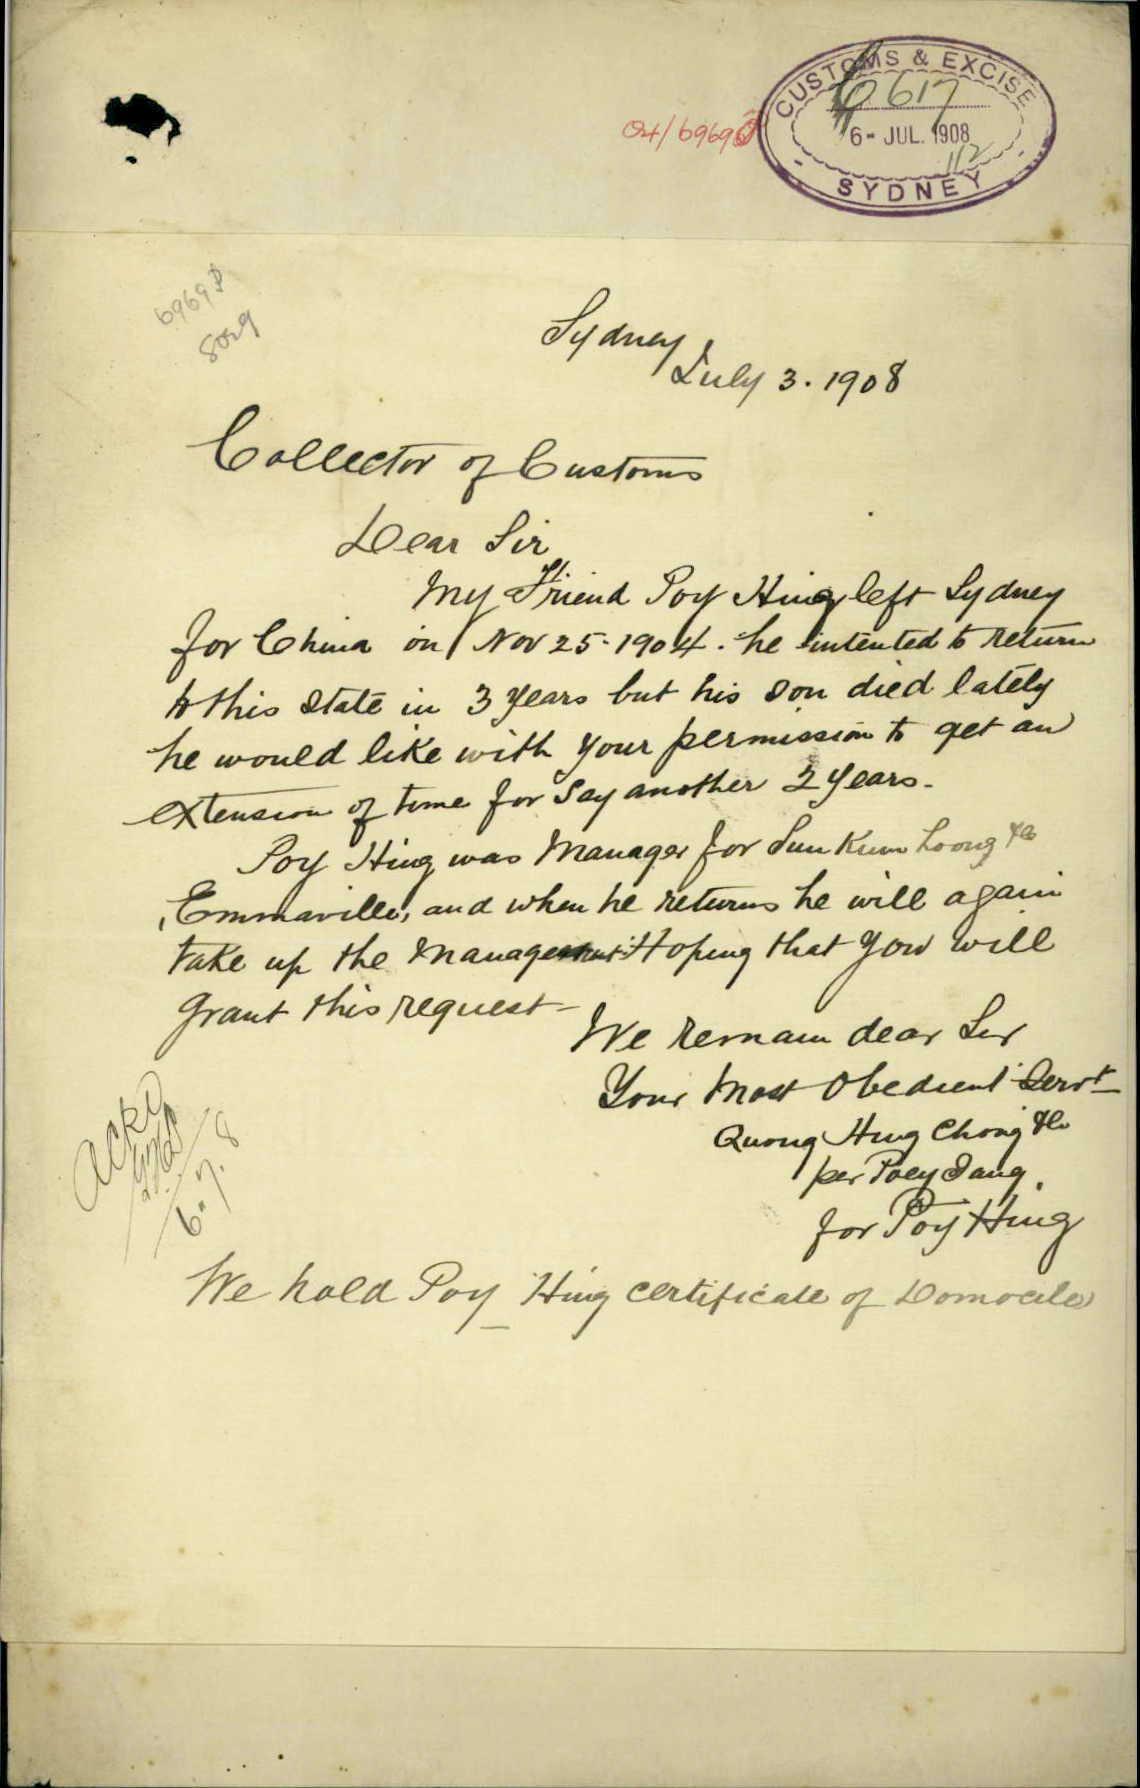 CUSTOMS & EXCISE
6- JUL. 1908
SYDNEY
Sydney
July 3. 1908
Collector of Customs
Dear Sir
My Friend Poy Hing left Sydney
for China on Nov 25. 1904. he intented to return
to this state in 3 years but his son died lately
he would like with your permission to get an
extension of time for say another 2 years.
Poy Hing was Manager for Sun Kum Loong &Co
Emmaville, and when he returns he will again
take up the management. Hoping that you will
grant this request
We remain dear Sir
Your Most Obedient Servt
Quong Hing Chong &Co
per Poey Sang.
for Poy Hing
Ackd
6.7.8
We hold Poy Hing certificate of Domocile